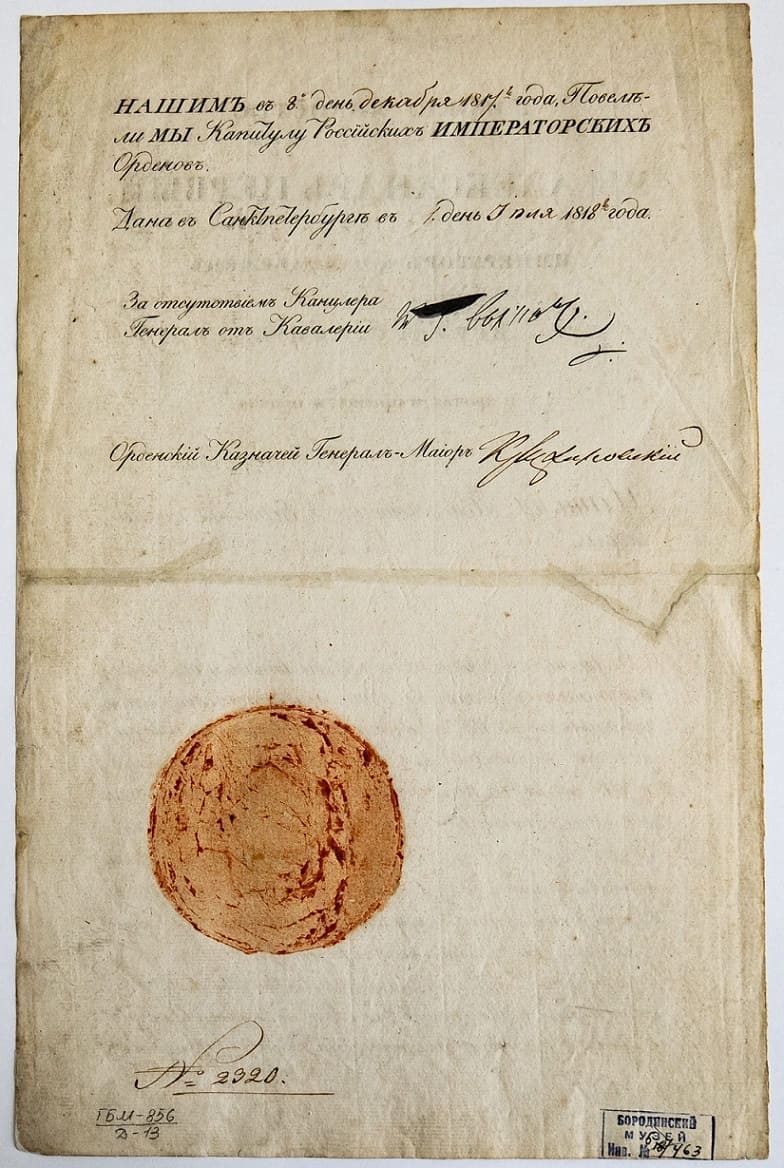 НАШИМЪ въ 8ᵒ день декабря 1817ᵍᵒ года, Повелѣ-
ли МЫ Капитулу Россійскихъ ИМПЕРАТОРСКИХЪ
Орденовъ.
Дана въ Санктпетербургѣ въ день Іюля 1818 года.
За отсутствіемъ Канцлера
Генералъ отъ Кавалеріи
Орденскій Казначей Генералъ-Маіоръ
№ 2320.
ГБМ-856
Д-13
БОРОДИНСКИЙ
МУЗЕЙ
Инв. №